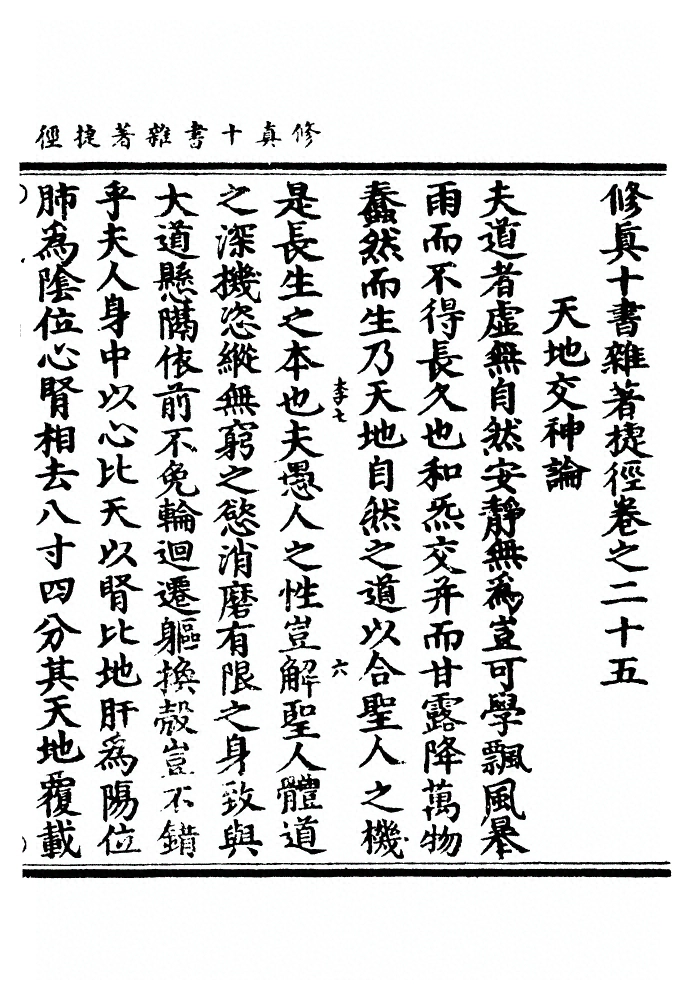 修真十書雜著捷徑
修眞十書雜著捷徑卷之二十五
天地交神論
夫道者虛無自然安靜無爲豈可學飄風暴
雨而不得長久也和炁交并而甘露降萬物
蠢然而生乃天地自然之道以合聖人之機
六
是長生之本也夫愚人之性豈解聖人體道
之深機恣縱無窮之慾消磨有限之身致與
大道懸隔依前不免輪迴遷軀換殼豈不錯
乎夫人身中以心比天以腎比地肝爲陽位
肺爲陰位心腎相去八寸四分其天地覆載